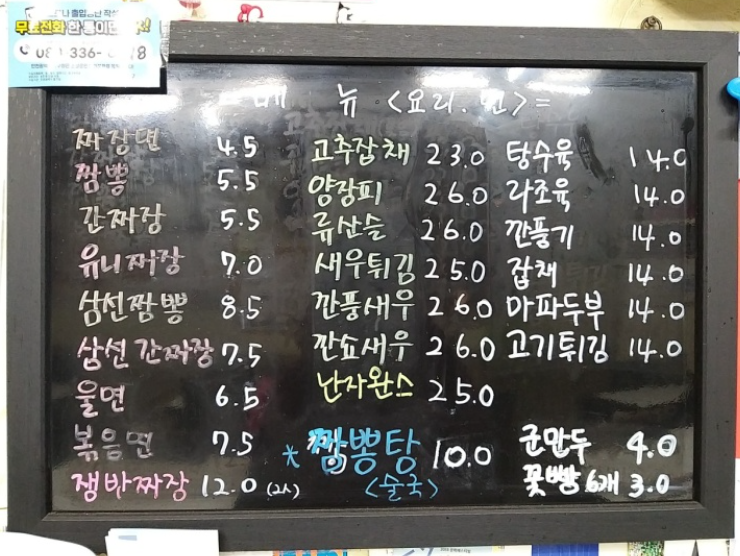 무료전화 한 통이면
메 뉴 <요리. 면>=
짜장면 4.5
짬뽕 5.5
간짜장 5.5
유니짜장 7.0
삼선짬뽕 8.5
삼선간짜장 7.5
울면 6.5
볶음면 7.5
쟁반짜장 12.0 (2人)
고추잡채 23.0
양장피 26.0
류산슬 26.0
새우튀김 25.0
깐풍새우 26.0
깐쇼새우 26.0
난자완스 25.0
* 짬뽕탕 10.0
<술국>
탕수육 14.0
라조육 14.0
깐풍기 14.0
잡채 14.0
마파두부 14.0
고기튀김 14.0
군만두 4.0
꽃빵 6개 3.0